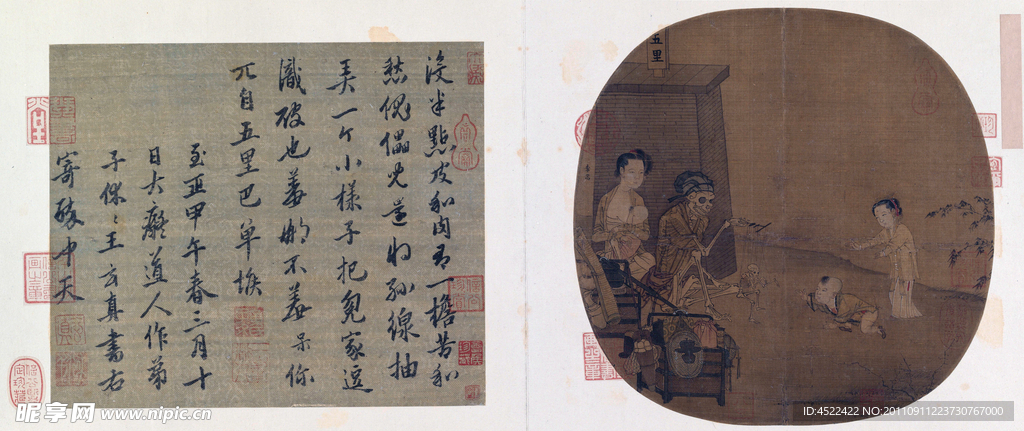 没半點皮和肉有一擔苦和
愁傀儡兒還將絲線抽
弄一个小樣子把冤家逗
識破也羞哪不羞呆你
兀自五里巴單堠
至正甲午春三月十
日大癡道人作弟
子休休王玄真書右
寄醉中天
五里
昵享网 www.nipic.cn
ID:4522422 NO:20110911223730767000